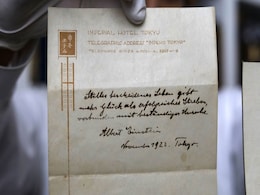 IMPERIAL HOTEL TOKYO
TELEGRAPHIC ADDRESS
Stilles bescheidenes Leben gibt
mehr Glück als erfolgreiches Streben,
verbunden mit beständiger Unruhe.
Albert Einstein
November 1922. Tokyo.